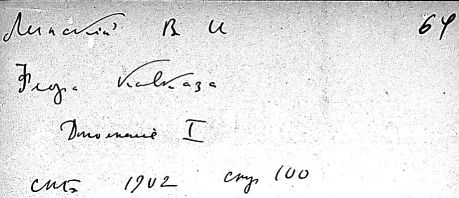 Липский В И 64
Флора Кавказа
Дополнение I
СПБ 1902 стр 100